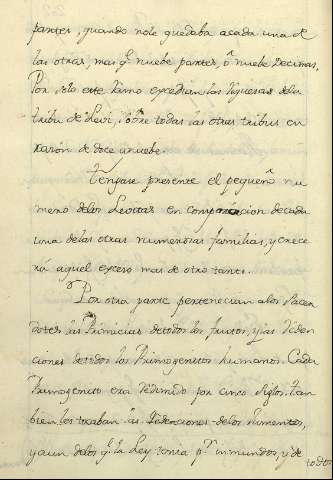 partes, quando nole quedaba acada una de
las otras, mas q.e nuebe partes, ó nuebe Decimas.
Por solo este ramo excedian las riquesas dela
tribu de Levi, sobre todas las otras tribus en
rasón de doce anuebe.
Tengase presente el pequeño nu
mero delos Levitas en comparacion decada
una delas otras numerosas familias, y crece
rá aquel exceso mas de otro tanto.
Por otra parte pertenecian alos Sacer
dotes las Primicias detodos los frutos, y las reden
ciones detodos los Primogenitos humanos. Cada
Primogenito era redimido por cinco siglos. Tam
bien les tocaban las redenciones delos Jumentos,
y aun delos q.e la Ley tenia p.r inmundos, y de
todos